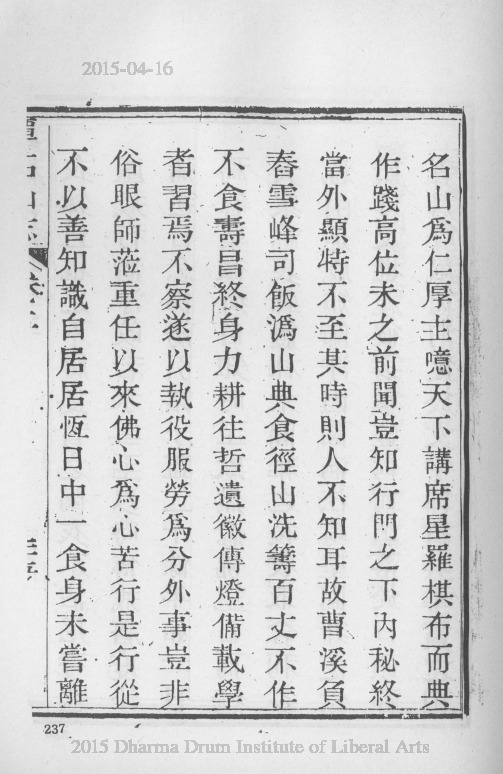 2015-04-16
名山爲仁厚主噫天下講席星羅棋布而典
作踐高位未之前聞豈知行門之下內秘終
當外顯特不至其時則人不知耳故曹溪負
舂雪峰司飯潙山典食徑山洗籌百丈不作
不食壽昌終身力耕往哲遺徽傳燈備載學
者習焉不察遂以執役服勞爲分外事豈非
俗眼師蒞重任以來佛心爲心苦行是行從
不以善知識自居居恆日中一食身未嘗離
山志
237
2015 Dharma Drum Institute of Liberal Arts